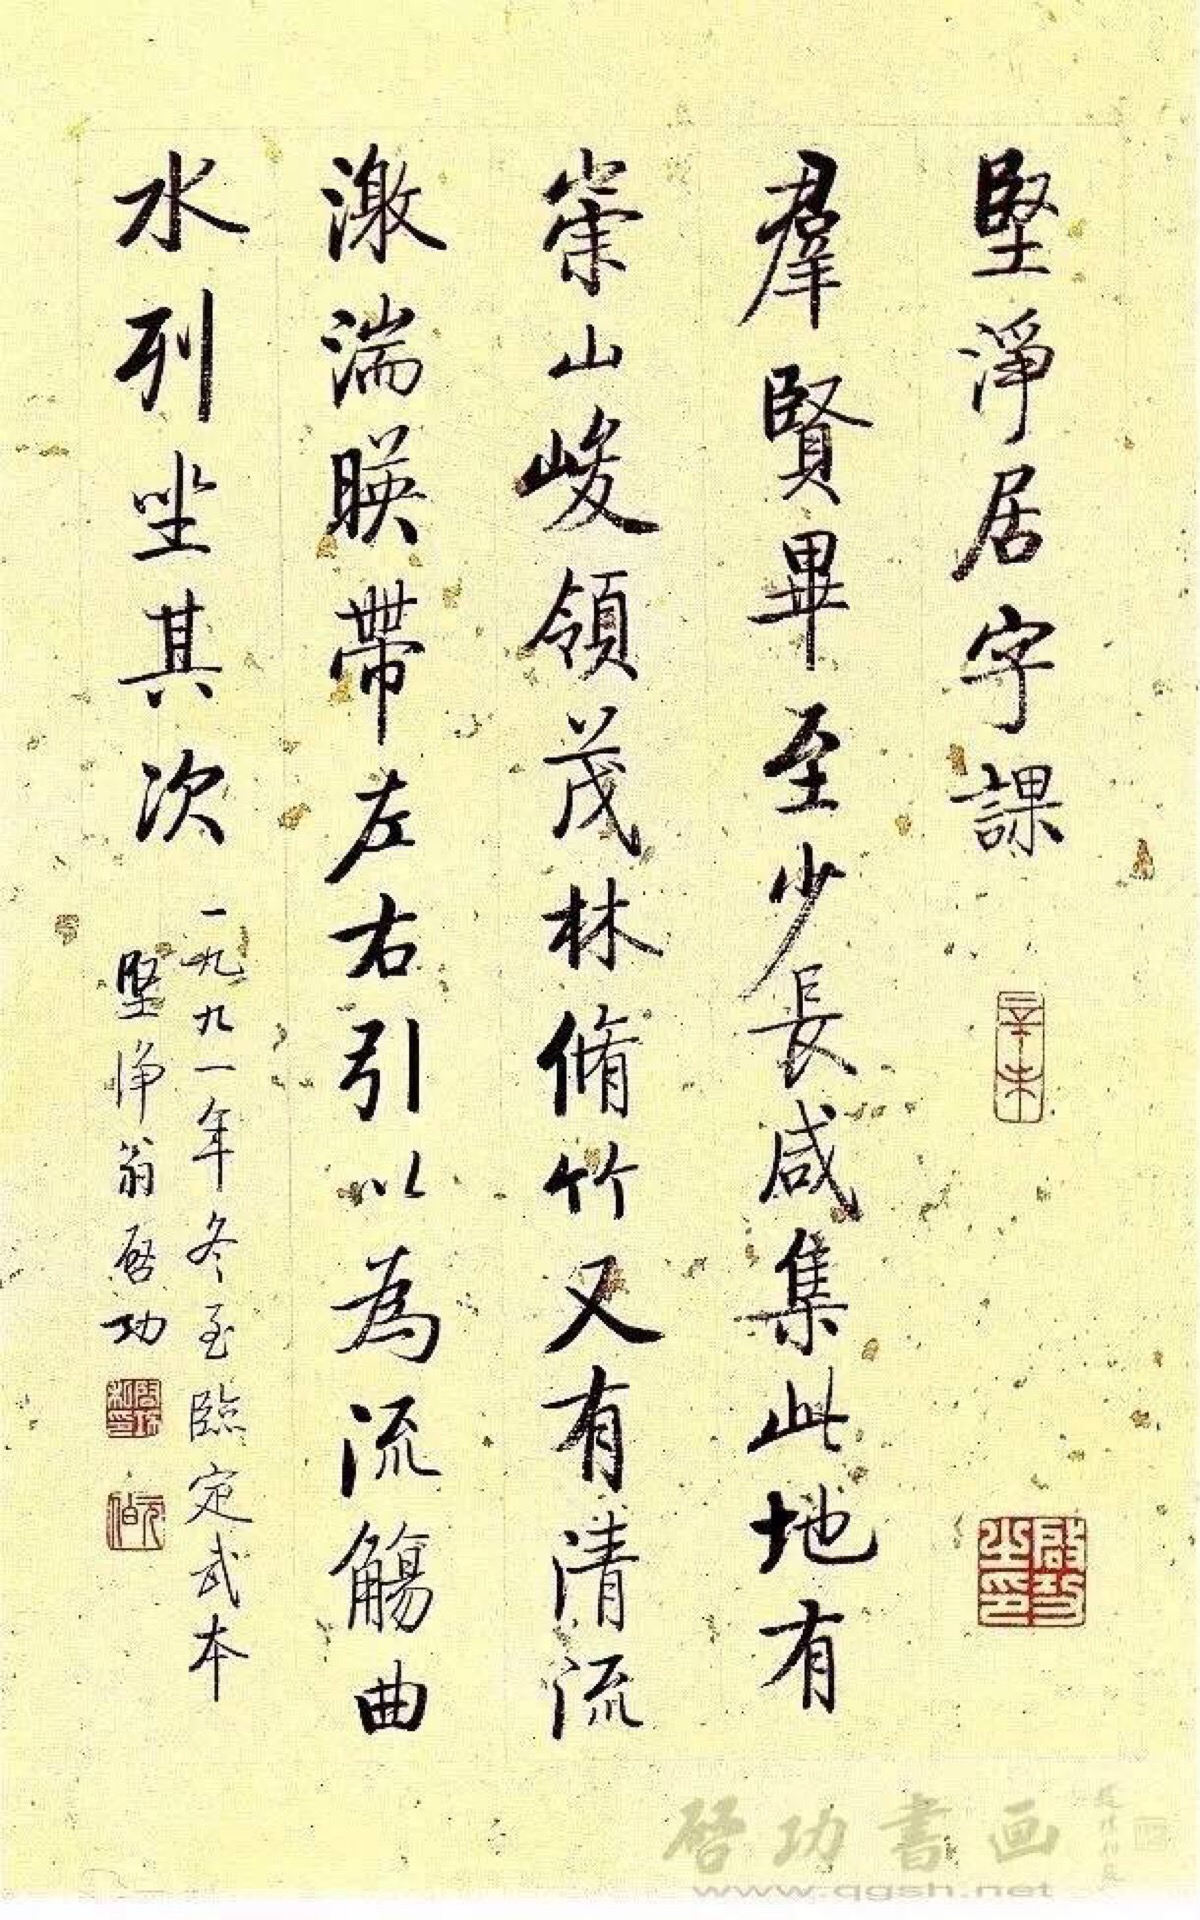 堅淨居字課
辛未
啟功之印
羣賢畢至少長咸集此地有
崇山峻領茂林脩竹又有清流
激湍暎帶左右引以為流觴曲
水列坐其次
一九九一年冬至臨定武本
堅淨翁啓功
元伯
啓功書画
www.qgsh.net